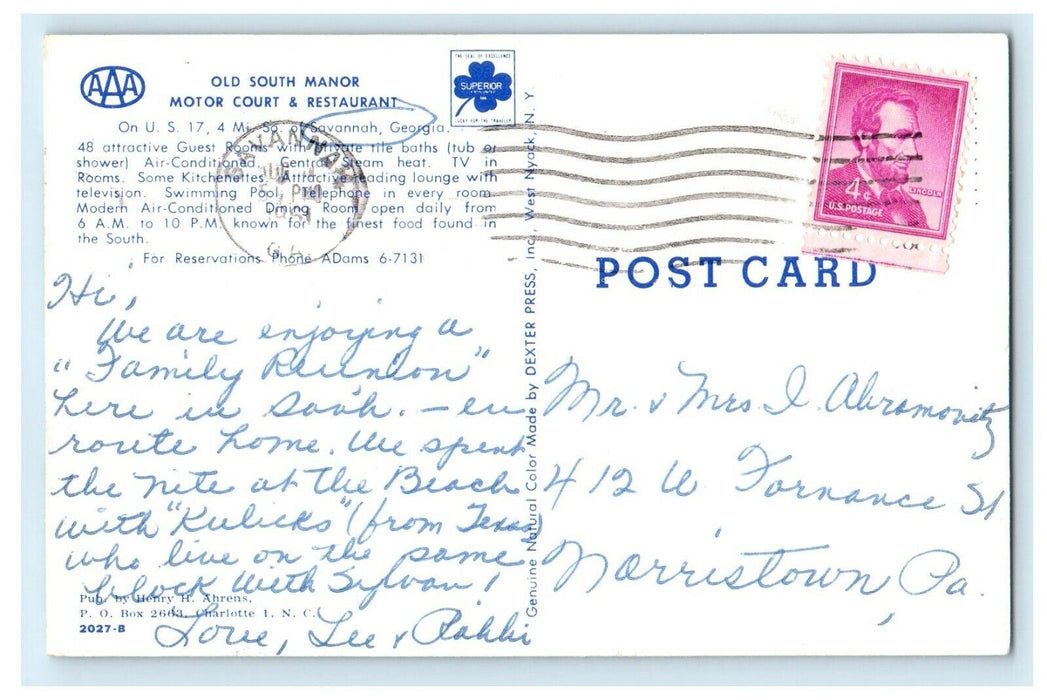 AAA
OLD SOUTH MANOR
MOTOR COURT & RESTAURANT
On U. S. 17, 4 Mi. So. of Savannah, Georgia.
48 attractive Guest Rooms with private tile baths (tub or
shower) Air-Conditioned. Central Steam heat. TV in
Rooms. Some Kitchenettes. Attractive reading lounge with
television. Swimming Pool, Telephone in every room.
Modern Air-Conditioned Dining Room open daily from
6 A.M. to 10 P.M. known for the finest food found in
the South.
For Reservations Phone ADams 6-7131
THE SEAL OF EXCELLENCE
SUPERIOR
LUCKY FOR THE TRAVELER
SAVANNAH
PM
GA
4¢
LINCOLN
U.S. POSTAGE
POST CARD
Genuine Natural Color Made by DEXTER PRESS, Inc., West Nyack, N. Y.
Hi,
We are enjoying a
"Family Reunion"
here in Sav'h. – en
route home. We spent
the nite at the Beach
with "Kulicks" (from Texas)
who live on the same
block with Sylvan!
Love, Lee &
Pub. by Henry H. Ahrens,
P. O. Box 2663, Charlotte 1, N. C.
2027-B
Mr. & Mrs I. Abramovitz
412 W Fornance St
Norristown, Pa.